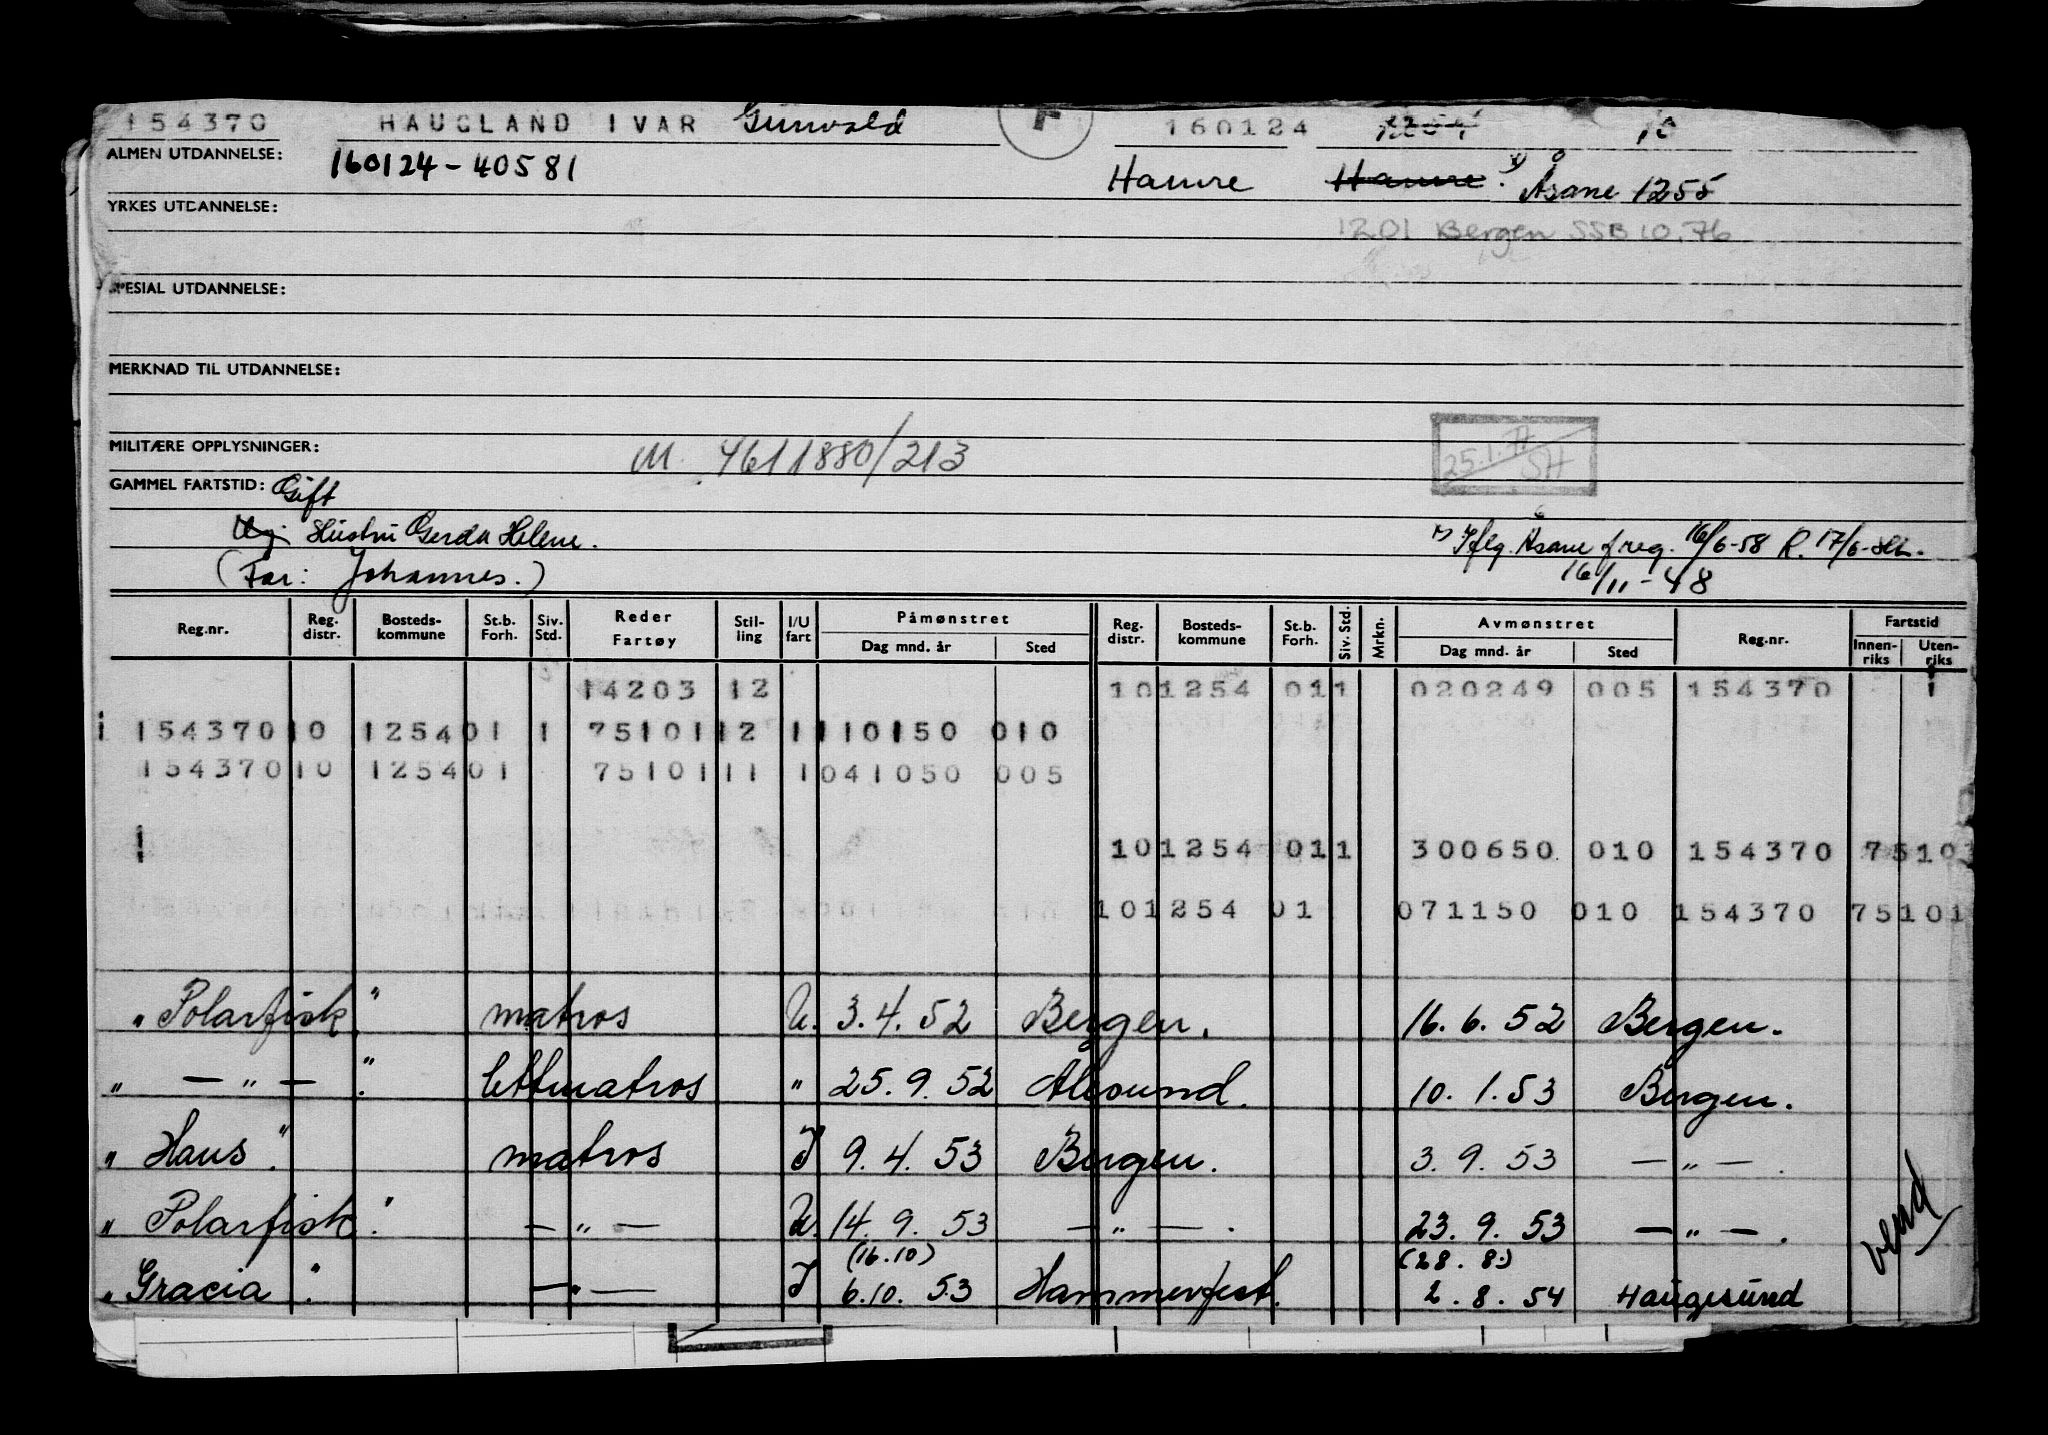 154370 HAUGLAND IVAR Gunvald F 160124 1254 10
ALMEN UTDANNELSE: 160124-40581 Hamre Hamre. x) Åsane 1255
YRKES UTDANNELSE: 1201 Bergen SSB 10.76
SPESIAL UTDANNELSE:
MERKNAD TIL UTDANNELSE:
MILITÆRE OPPLYSNINGER: M. 4611880/213 25.1.77 SH
GAMMEL FARTSTID: Gift
Ugj. Hustru Gerda Helene. x) Iflg. Åsane f.reg. 16/6-58 R. 17/6-
(Far: Johannes.) 16/11-48
Reg.nr. Reg. distr. Bosteds- kommune St.b. Forh. Siv. Std. Reder Fartøy Stil- ling I/U fart Påmønstret Dag mnd. år Sted Reg. distr. Bosteds- kommune St.b. Forh. Siv. Std. Mrkn. Avmønstret Dag mnd. år Sted Reg.nr. Fartstid Innen- riks Uten- riks
14203 12 10 1254 01 1 020249 005 154370 1
1 154370 10 1254 01 1 75101 12 1 110150 010
154370 10 1254 01 75101 11 1 041050 005
1 10 1254 01 1 300650 010 154370 75101
10 1254 01 071150 010 154370 75101
"Polarfisk" matros U. 3.4.52 Bergen. 16.6.52 Bergen.
" — " — " lettmatros " 25.9.52 Alesund. 10.1.53 Bergen.
"Haus". matros I 9.4.53 Bergen. 3.9.53 — " — .
"Polarfisk". — " — U. 14.9.53 — " — . 23.9.53 — " — .
(16.10) (28.8.)
"Gracia". — " — I 6.10.53 Hammerfest. 2.8.54 Haugesund
vend